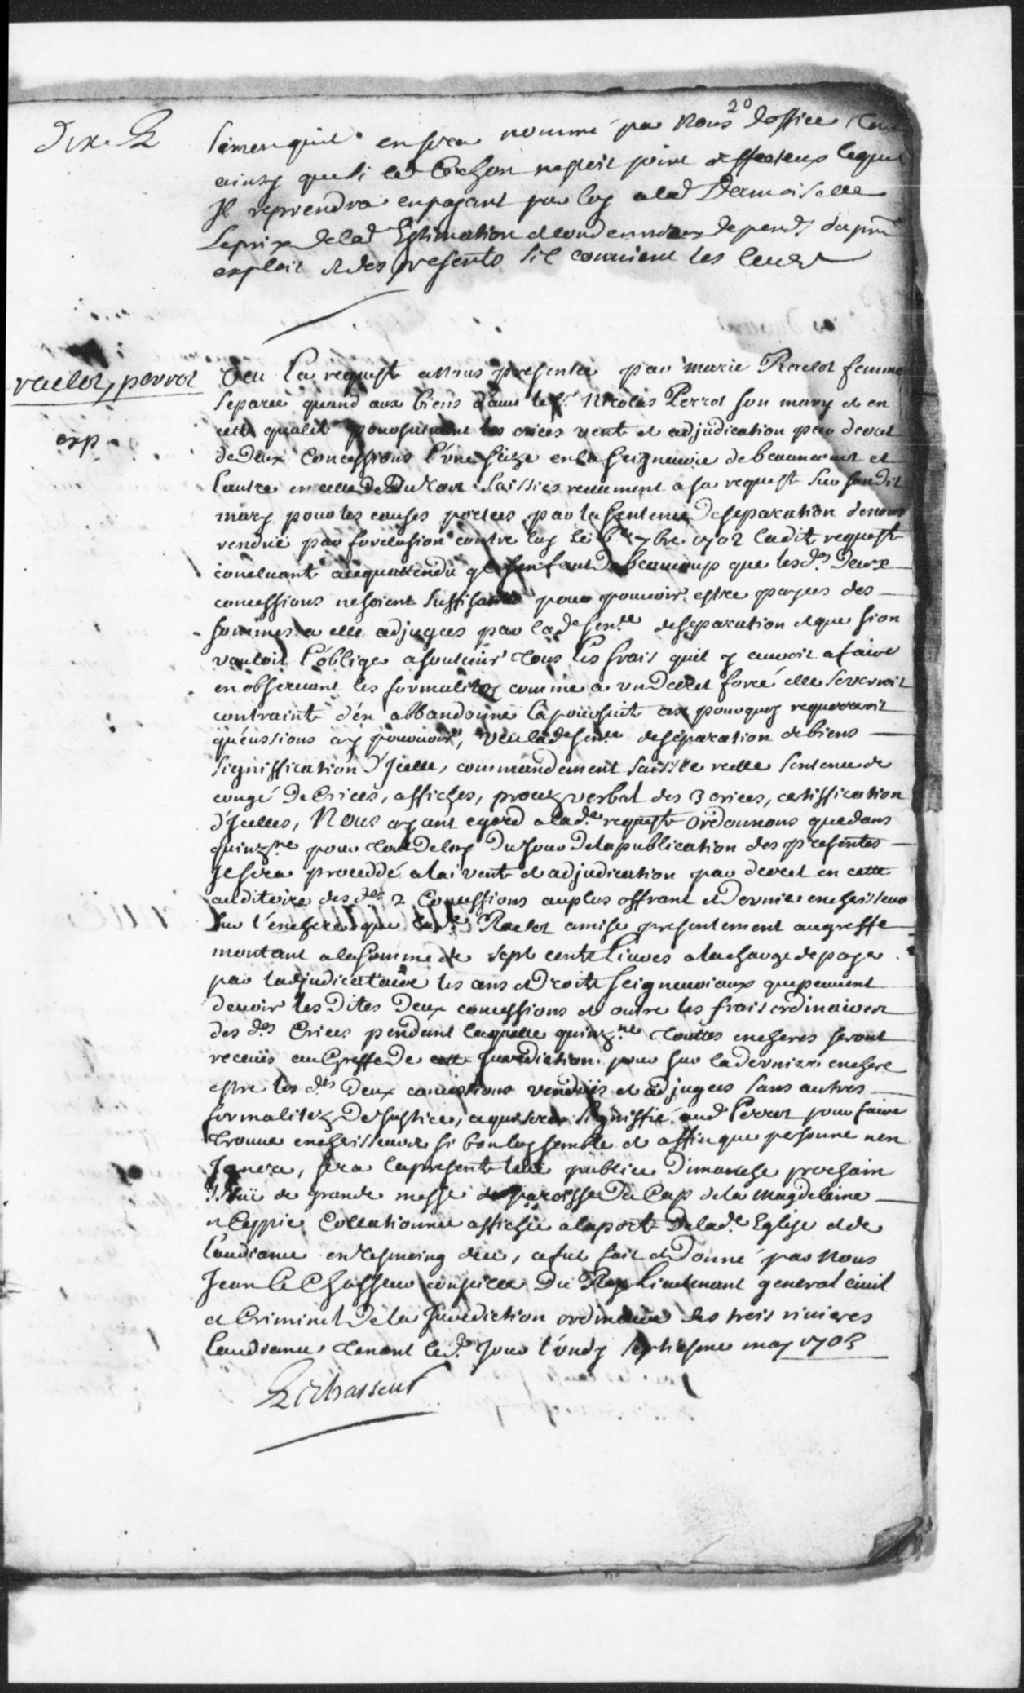 20
Dix.
lexmen quil en fera nommé par nous d'office tout
ainsy que si led Cochon nestoit point deffectueux lequel
Il reprendra en payant par luy a lad Demoiselle
Le prix de lad Estimation et condemner es depens du p.nt
exploit et des presents sil convient les lever
raclot, perrot
exp
Veu La requeste a nous presentée par marie Raclot femme
separée quand aux biens d'avec le Sr Nicolas Perrot son mary et en
cette qualité poursuivant les criees vente et adjudication par decret
de deux Concessions l'une size en la seigneurie de becancour et
l'autre en celle de Dutort saisies reelement a sa requeste sur sondit
mary pour les causes portees par la sentence de separation de nous
rendüe par forclusion contre luy le 6e 7bre 1702 ladit requeste
concluant a ce quattendu qil sen faut de beaucoup que lesd. Deux
concessions ne soient suffisantes pour pouvoir estre payée des
sommes a elle adjugées par lad.e sen.ce de separation et que si on
vouloit l'obliger a soutenir tous les frais quil y auroit a faire
en observant les formalitez comme a un Decret forcé elle se verroit
contrainte d'en abbandonner la poursuite ce pourquoy requerroit
qu'eussions a y pourvoir, veu lad.e sen.ce de separation de biens
signiffication d'Icelle, commandement saisie reelle sentence de
congé de criees, affiches, procez verbal des 3 criees, certiffication
d'Icelles, Nous ayant egard a lad.e requeste ordonnons que dans
quinz.ne pour tout delay du Jour de la publication des presentes
Il sera proceddé a la vente et adjudication par decret en cette
auditoire des d.es 2 Concessions au plus offrant et dernier encherisseur
sur l'enchere que lad.e Raclot a mise presentement au greffe
montant a la somme de sept cents livres a la charge de payer
par l'adjudicataire les cens et droits seigneuriaux que peuvent
devoir les dites deux concessions et outre les frais ordinaires
des d.es Criees pendant laquelle quinz.ne toutes encheres seront
receües au Greffe de cette Jurediction pour sur la derniere enchere
estre les d.es deux concessions vendües et adjugées sans autres
formalitez de Justice, ce qui sera signiffié aud Perrot pour faire
trouver encherisseurs si bon luy semble et affin que personne nen
Ignore, sera la presente leüe publiée dimanche prochain
Issüe de grande messe de paroisse du Cap de la Magdeleine
et Coppie Collationnée affichée a la porte de lad.e Eglise et de
l'audiance en tesmoing de ce, ce fut fait et Donné par Nous
Jean Le Chasseur conseiller du Roy Lieutenant general civil
et Criminel de la Jurediction ordinaire des trois rivieres
l'audiance tenant led. Jour Lundy septiesme may 1703
Le Chasseur